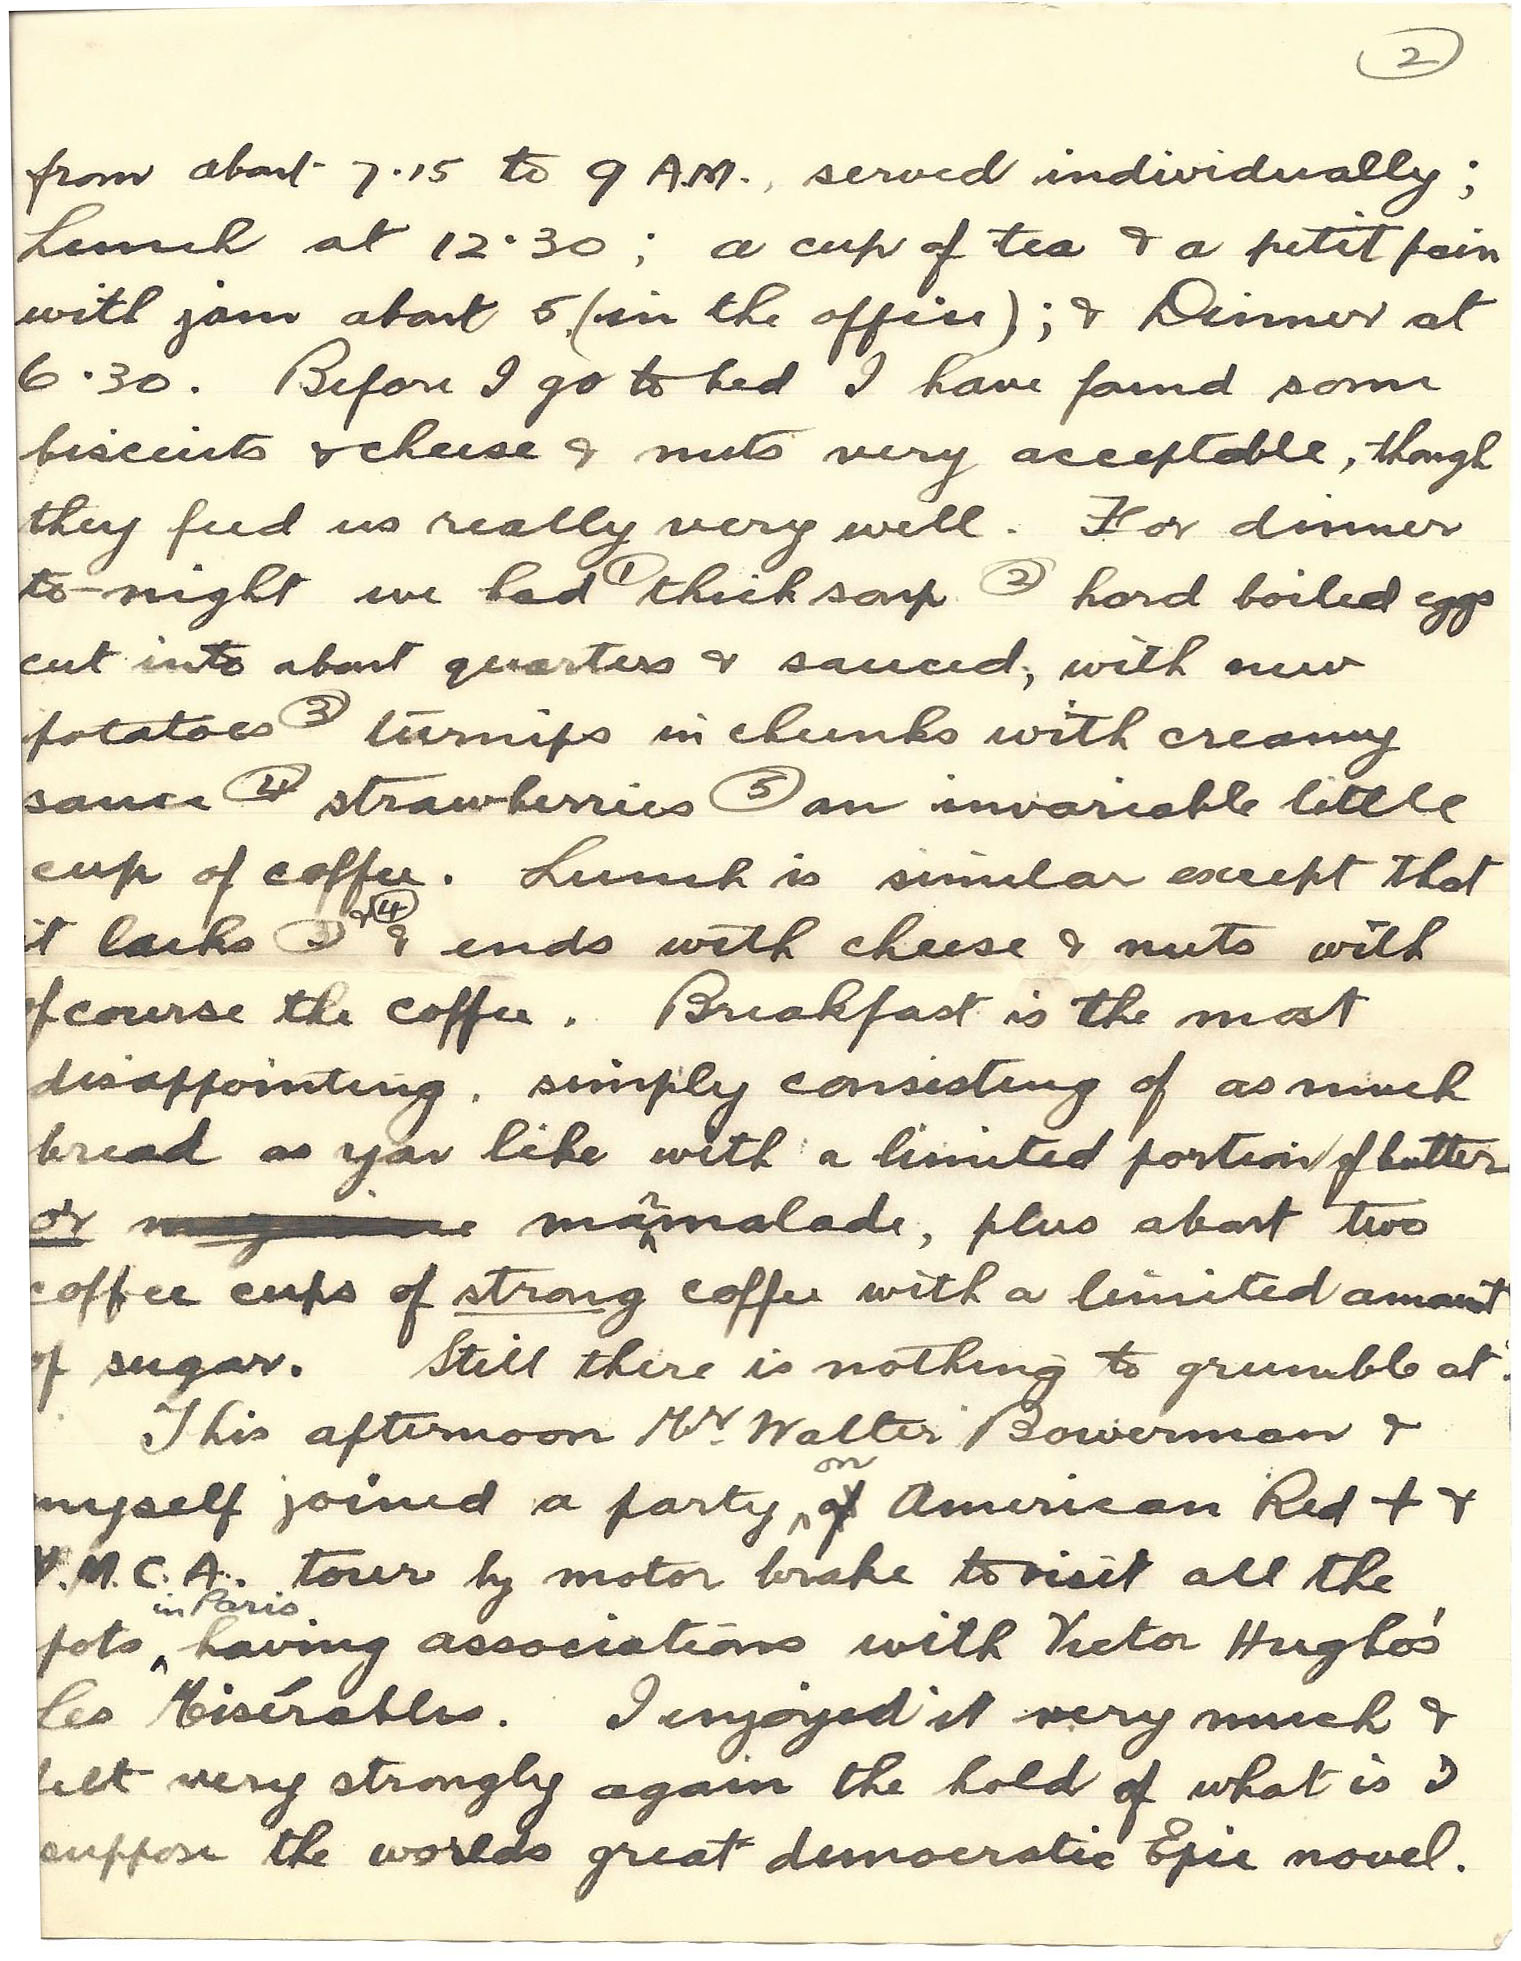 2
from about 7.15 to 9 A.M., served individually;
Lunch at 12.30; a cup of tea & a petit pain
with jam about 5 (in the office); & Dinner at
6.30. Before I go to bed I have found some
biscuits & cheese & nuts very acceptable, though
they feed us really very well. For dinner
to-night we had ① thick soup ② hard boiled eggs
cut into about quarters & sauced, with new
potatoes ③ turnips in chunks with creamy
sauce ④ strawberries ⑤ an invariable little
cup of coffee. Lunch is similar except that
it lacks ③ & ④ & ends with cheese & nuts with
of course the coffee. Breakfast is the most
disappointing, simply consisting of as much
bread as you like with a limited portion of butter
or marmalade, plus about two
coffee cups of strong coffee with a limited amount
of sugar. Still there is nothing to grumble at.
This afternoon Mr. Walter Bowerman &
myself joined a party on American Red + &
Y.M.C.A. tour by motor brake to visit all the
pots in Paris having associations with Victor Hugho's
Les Misérables. I enjoyed it very much &
felt very strongly again the hold of what is I
suppose the worlds great democratic Epic novel.